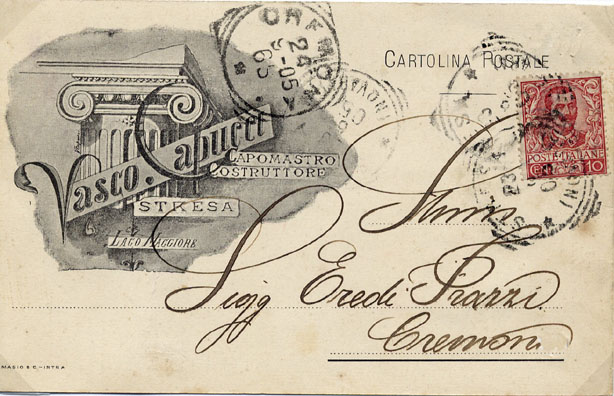 CARTOLINA POSTALE
Vasco Capucci
CAPOMASTRO
COSTRUTTORE
STRESA
LAGO MAGGIORE
CREMONA
24
9-05
POSTE ITALIANE
CENT. 10
Sigg Eredi Prazzi
Cremona
MASIO & C.-INTRA